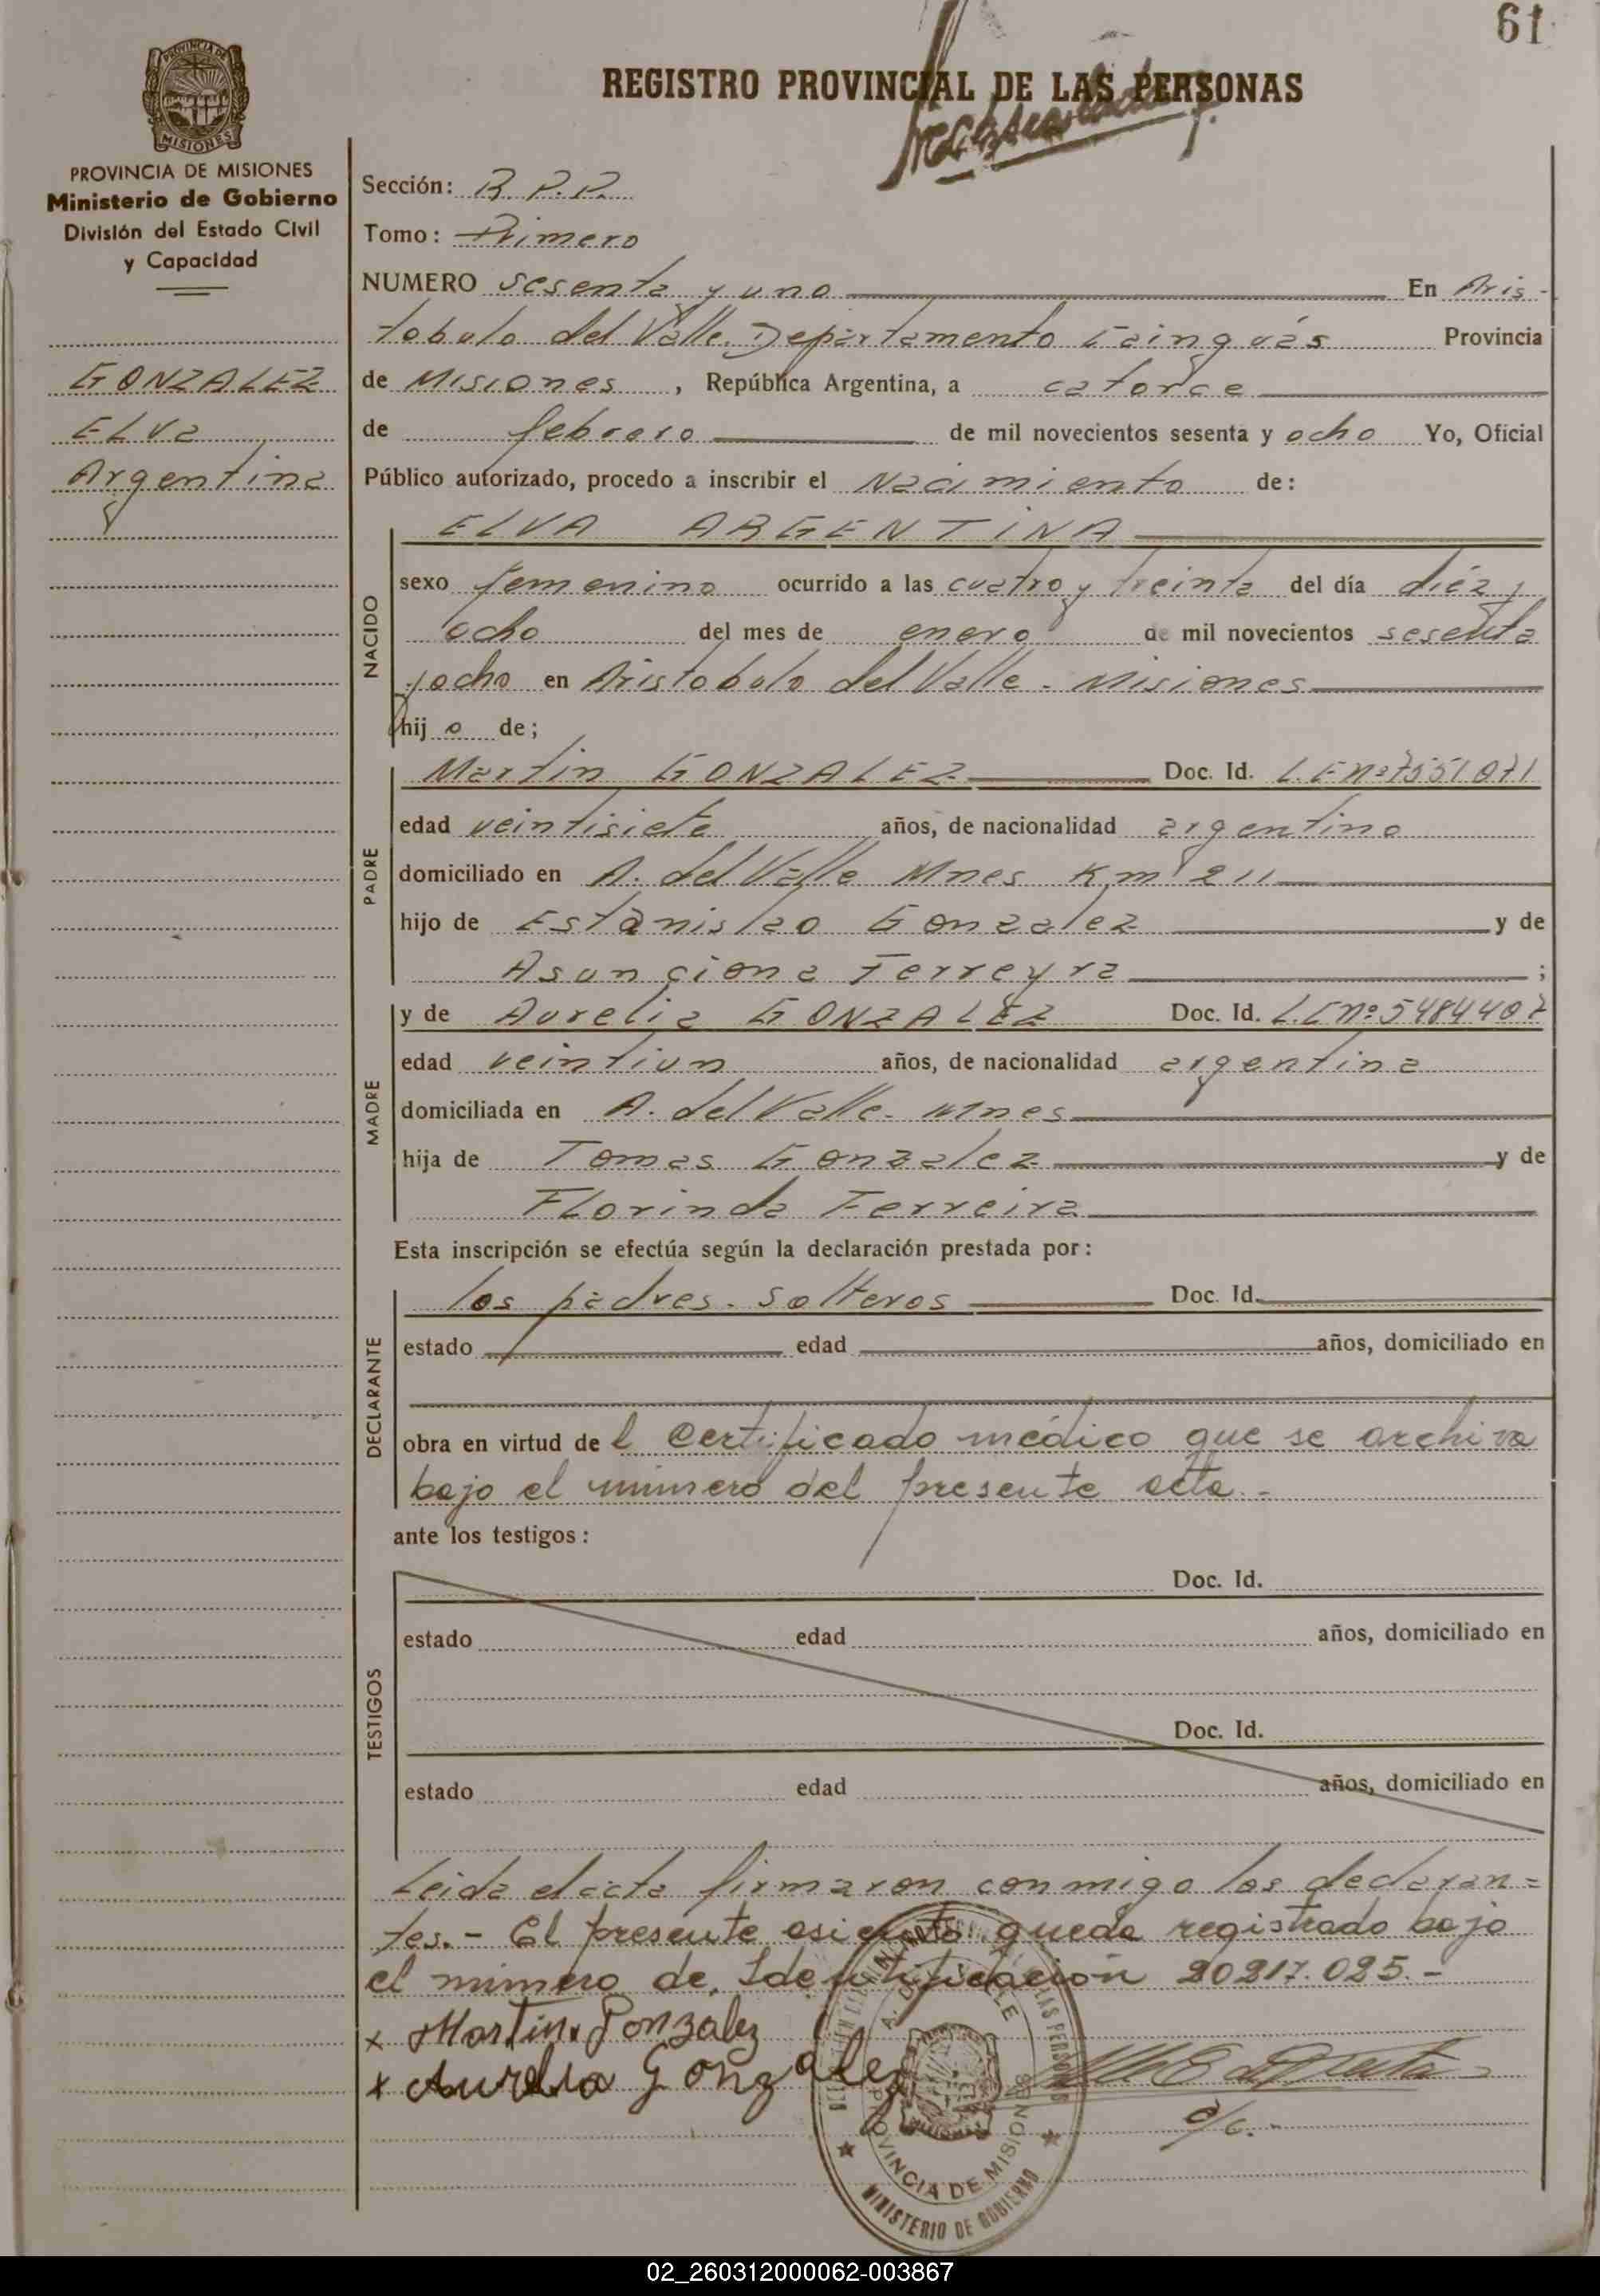 61
REGISTRO PROVINCIAL DE LAS PERSONAS
PROVINCIA DE
MISIONES
PROVINCIA DE MISIONES
Ministerio de Gobierno
División del Estado Civil
y Capacidad
GONZALEZ
ELVa
Argentina
Sección: R.P.P.
Tomo: Primero
NUMERO sesenta y uno En Aris-
tobulo del Valle. Departamento Cainguás Provincia
de Misiones, República Argentina, a catorce
de febrero de mil novecientos sesenta y ocho Yo, Oficial
Público autorizado, procedo a inscribir el Nacimiento de:
NACIDO
ELVA ARGENTINA
sexo femenino ocurrido a las cuatro y treinta del día diéz y
ocho del mes de enero de mil novecientos sesenta
y ocho en Aristobulo del Valle - Misiones
hij o de;
PADRE
Martin GONZALEZ Doc. Id. L.E nº 7551071
edad veintisiete años, de nacionalidad argentino
domiciliado en A. del Valle Mnes Km 211
hijo de Estanislao Gonzalez y de
Asunciona Ferreyra ;
MADRE
y de Aurelia GONZALEZ Doc. Id. L.C nº 5484407
edad veintiun años, de nacionalidad argentina
domiciliada en A. del Valle - Mnes
hija de Tomas Gonzalez y de
FLorinda Ferreira
Esta inscripción se efectúa según la declaración prestada por:
DECLARANTE
los padres. solteros Doc. Id.
estado edad años, domiciliado en
obra en virtud de l certificado médico que se archiva
bajo el número del presente acta.-
ante los testigos:
TESTIGOS
Doc. Id.
estado edad años, domiciliado en
Doc. Id.
estado edad años, domiciliado en
Leida el acta firmaron conmigo los declaran=
tes.- El presente asiento queda registrado bajo
el número de Identificación 20217.025.-
x Martin Gonzalez
x Aurelia Gonzalez
PROVINCIA DE MISIONES
MINISTERIO DE GOBIERNO
02_260312000062-003867